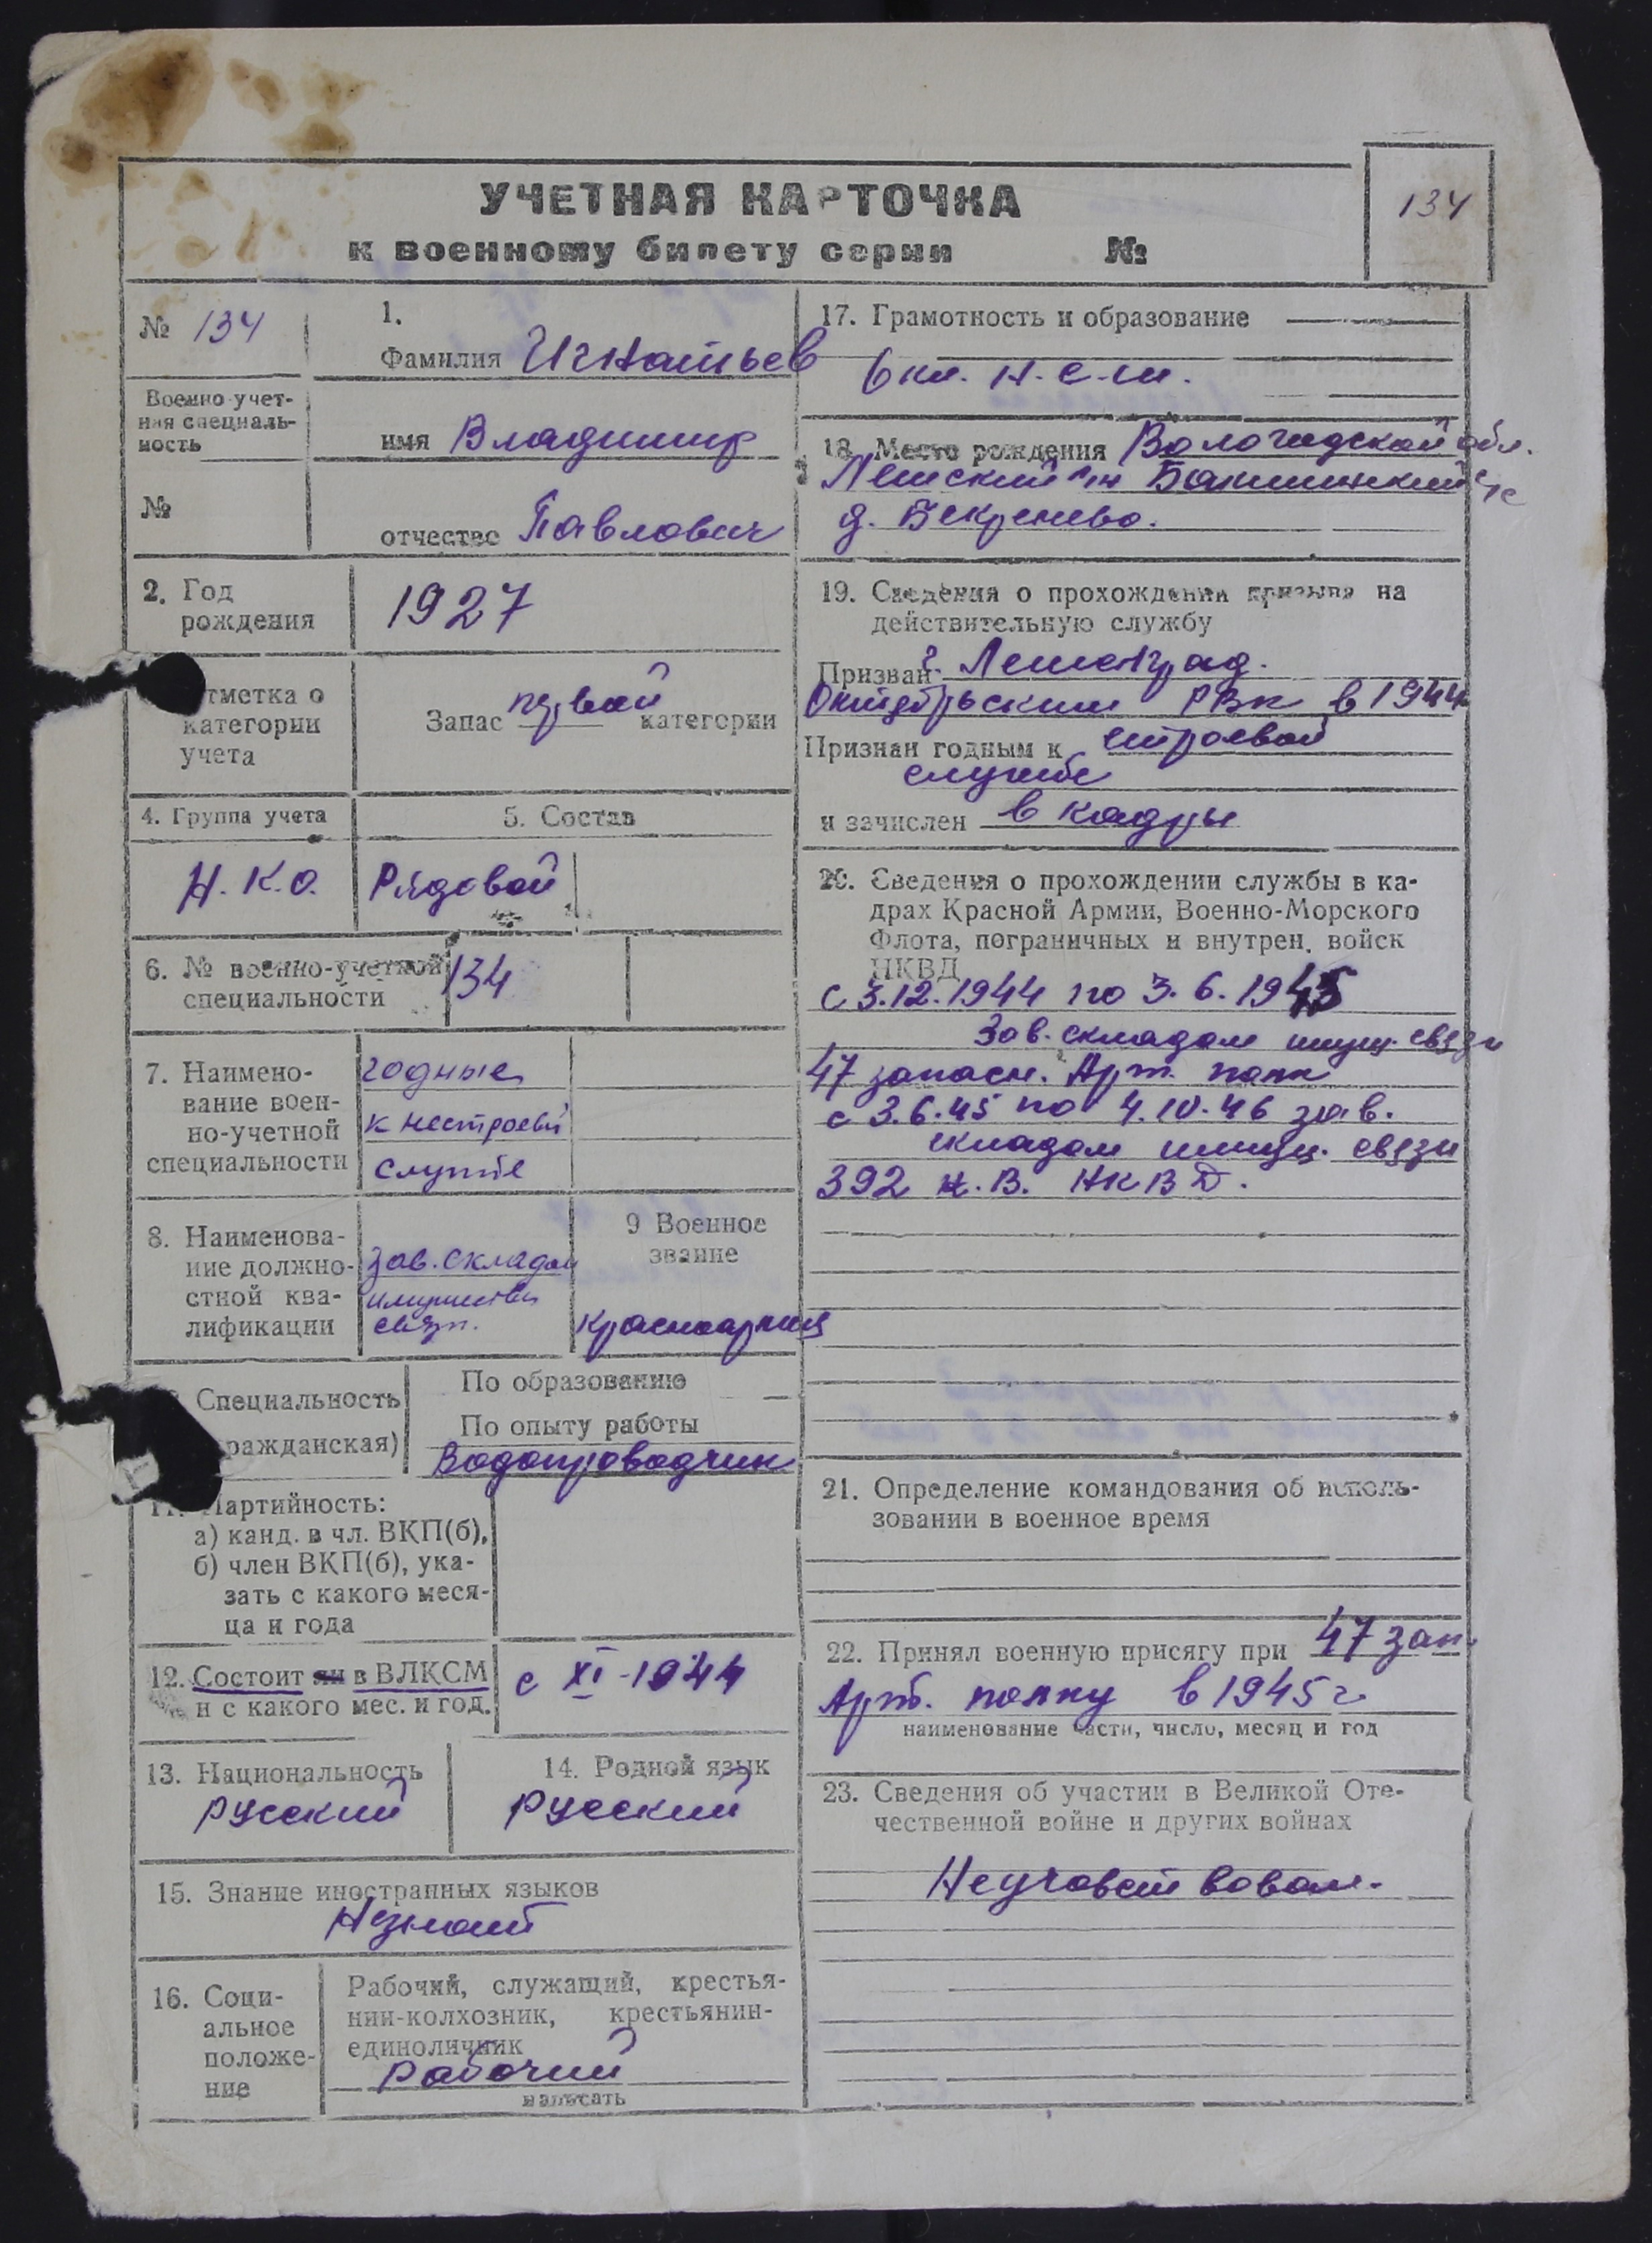 УЧЕТНАЯ КАРТОЧКА
к военному билету серии №
134
№ 134
Военно-учет-
ная специаль-
ность
№
1.
Фамилия Игнатьев
имя Владимир
отчество Павлович
2. Год
рождения
1927
отметка о
категории
учета
Запас первой категории
4. Группа учета
Н.К.О.
5. Состав
Рядовой
6. № военно-учетной
специальности
134
7. Наимено-
вание воен-
но-учетной
специальности
годные
к нестроевой
службе
8. Наименова-
ние должно-
стной ква-
лификации
Зав. складом
имущества
связи.
9 Военное
звание
Красноармеец
Специальность
(гражданская)
По образованию —
По опыту работы
Водопроводчик
11. Партийность:
а) канд. в чл. ВКП(б),
б) член ВКП(б), ука-
зать с какого меся-
ца и года
12. Состоит ли в ВЛКСМ
и с какого мес. и год.
с XI-1944
13. Национальность
Русский
14. Родной язык
Русский
15. Знание иностранных языков
Незнает
16. Соци-
альное
положе-
ние
Рабочий, служащий, крестья-
нин-колхозник, крестьянин-
единоличник
Рабочий
написать
17. Грамотность и образование
6 кл. Н.С.Ш.
18. Место рождения Вологодской обл.
Лешский р-н с/с
д. Бекренево.
19. Сведения о прохождении призыва на
действительную службу
Призван г. Ленинград.
Октябрьским РВК в 1944
Признан годным к строевой
службе
и зачислен в кадры
20. Сведения о прохождении службы в ка-
драх Красной Армии, Военно-Морского
Флота, пограничных и внутрен. войск
НКВД
с 3.12.1944 по 3.6.1945
Зав. складом имущ. связи
47 запасн. Арт. полк
с 3.6.45 по 4.10.46 зав.
складом имущ. связи
392 к.В. НКВД.
21. Определение командования об исполь-
зовании в военное время
22. Принял военную присягу при 47 зап.
Арт. полку в 1945 г
наименование части, число, месяц и год
23. Сведения об участии в Великой Оте-
чественной войне и других войнах
Неучавствовал.